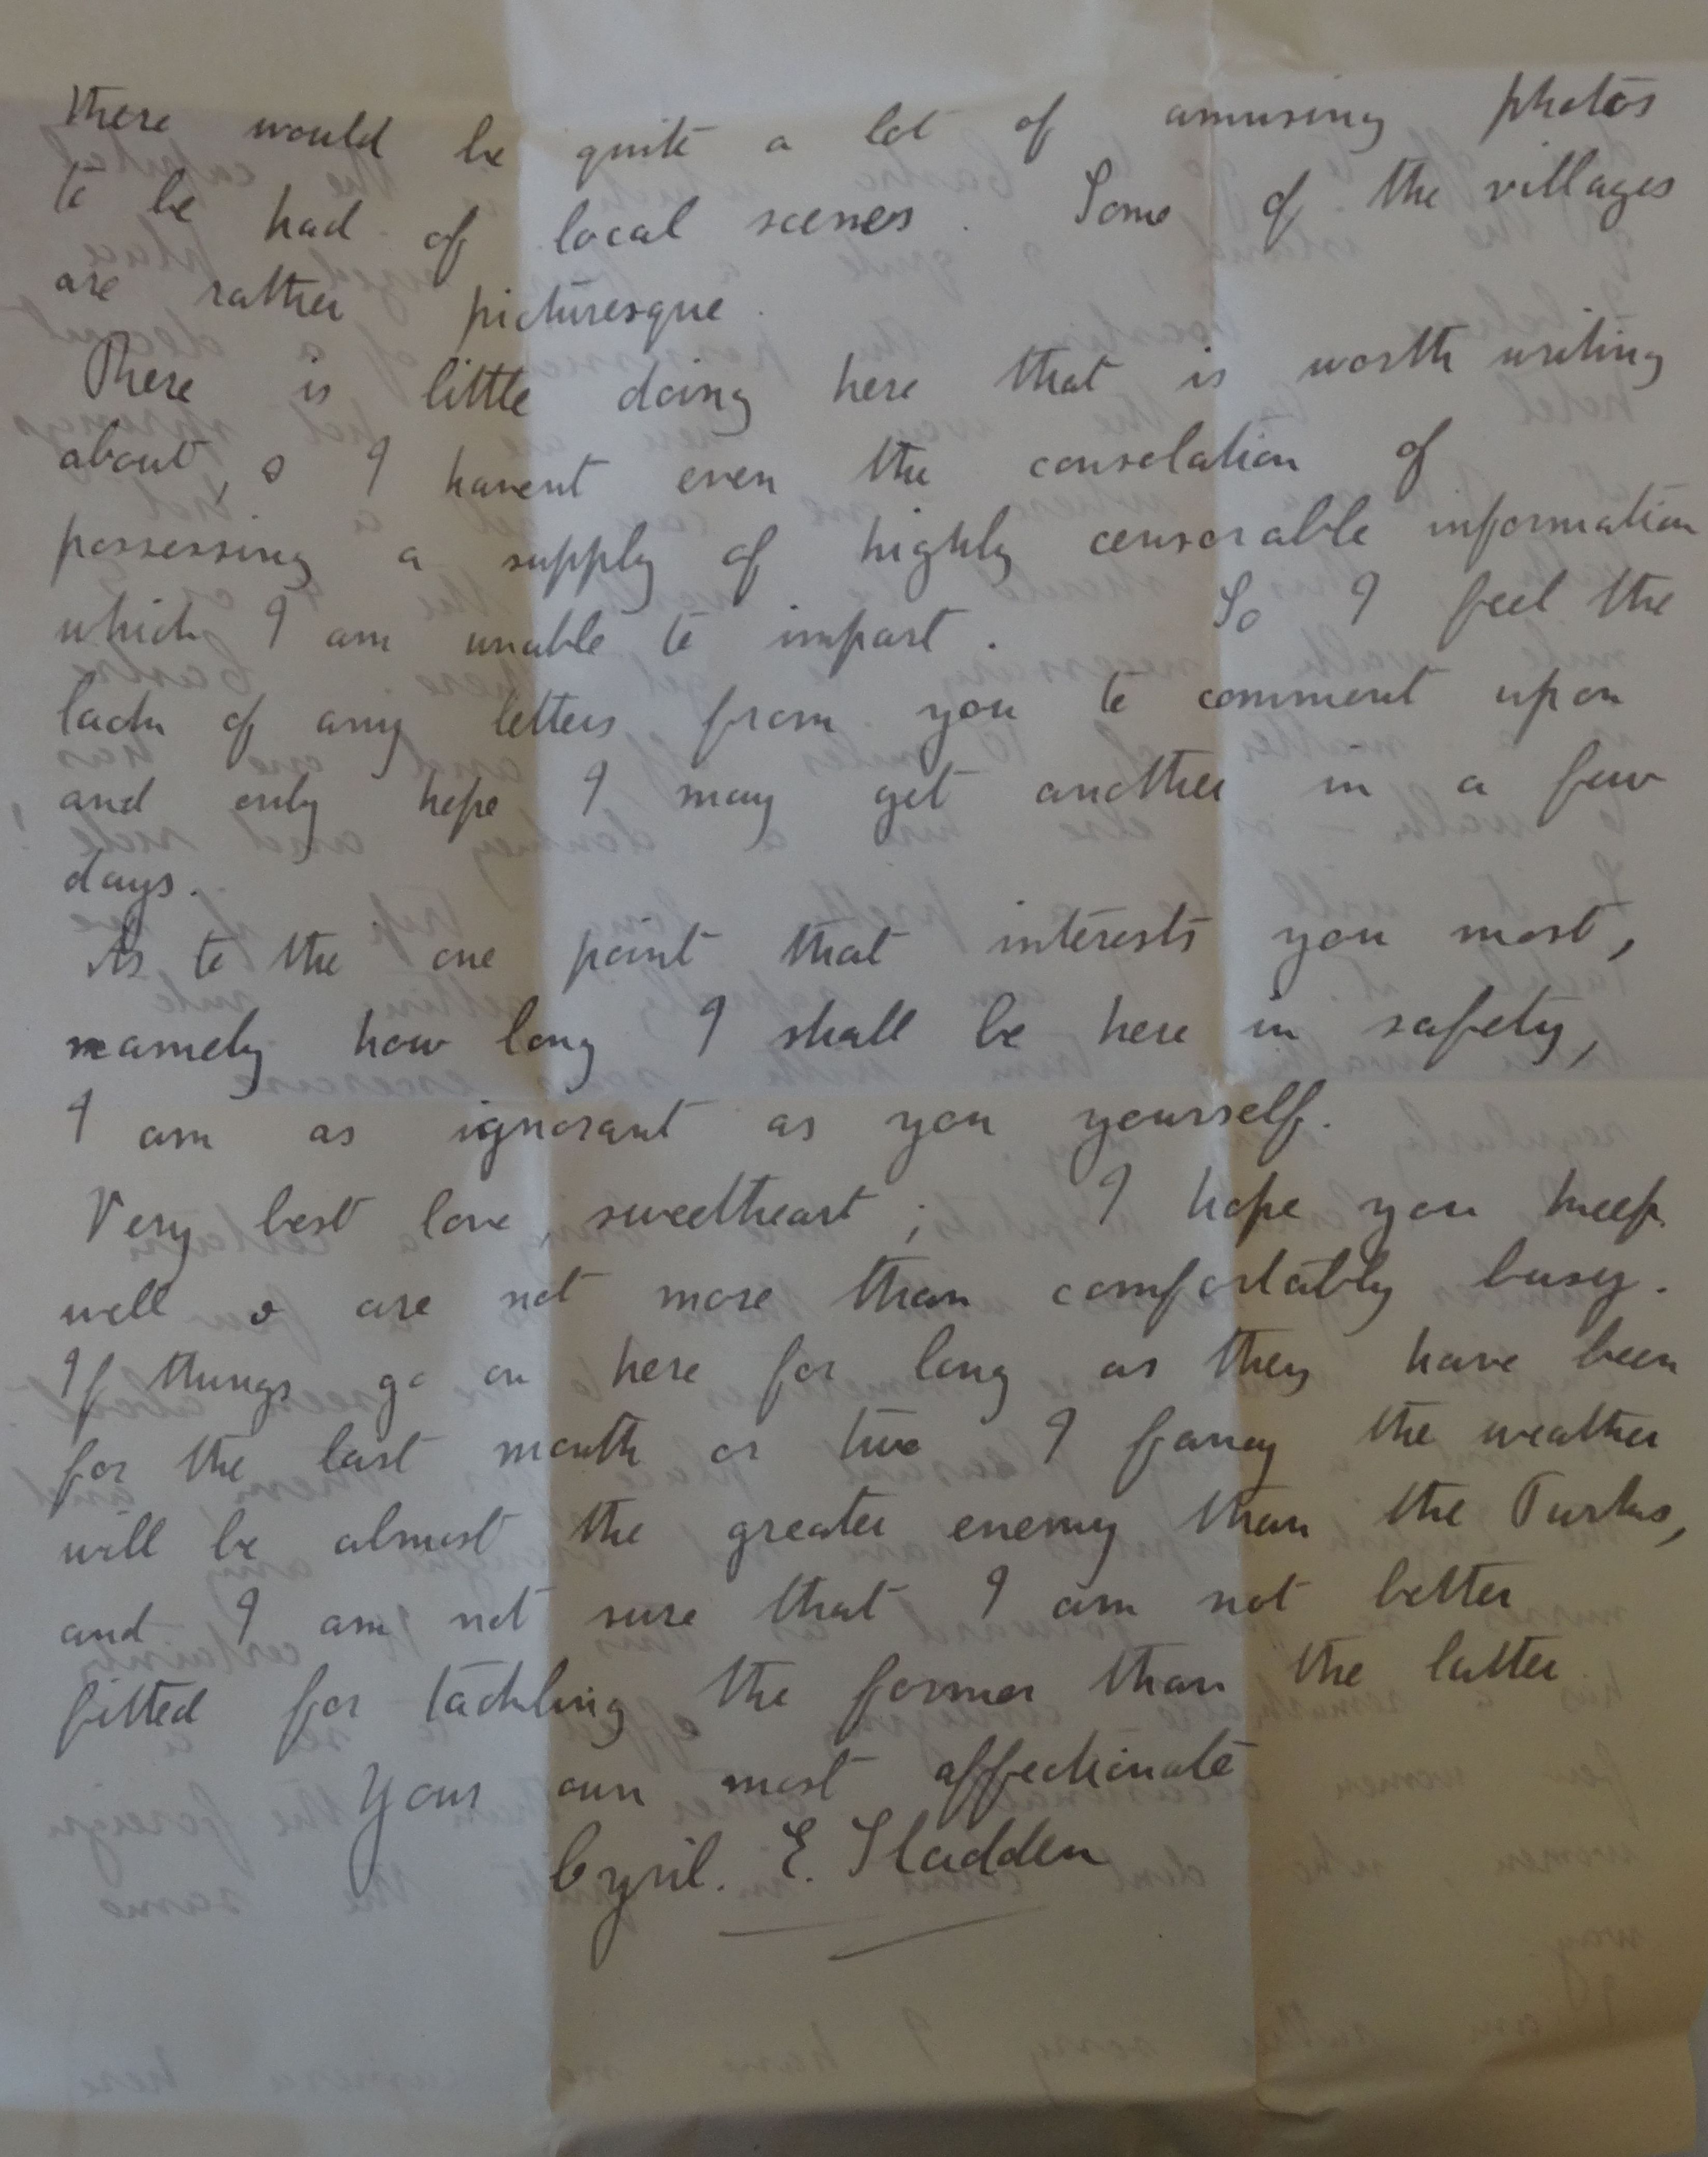 there would be quite a lot of amusing photos
to be had of local scenes. Some of the villages
are rather picturesque.
There is little doing here that is worth writing
about, & I havent even the consolation of
possessing a supply of highly censorable information
which I am unable to impart. So I feel the
lack of any letters from you to comment upon
and only hope I may get another in a few
days.
As to the one point that interests you most,
namely how long I shall be here in safety,
I am as ignorant as you yourself.
Very best love, sweetheart; I hope you keep
well & are not more than comfortably busy.
If things go on here for long as they have been
for the last month or two I fancy the weather
will be almost the greater enemy than the Turks,
and I am not sure that I am not better
fitted for tackling the former than the latter.
Your own most affectionate
Cyril. E. Sladden